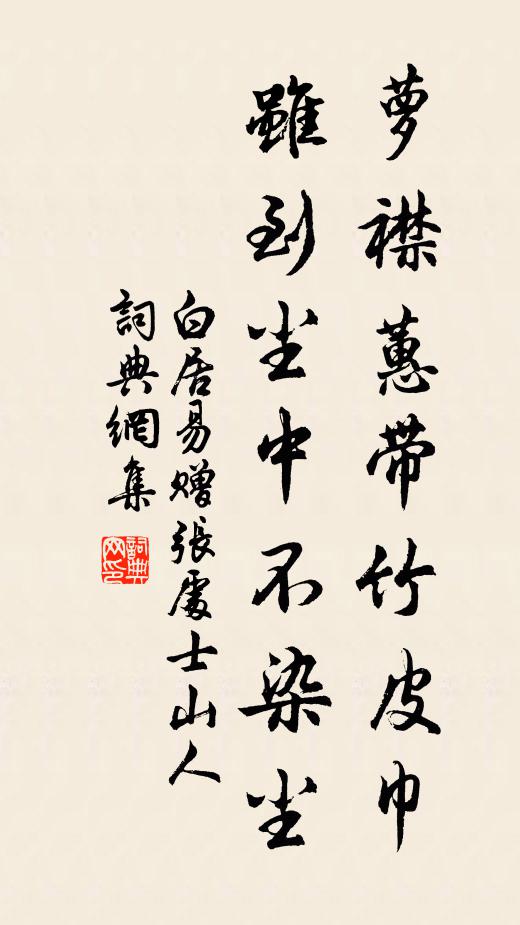 萝襟蕙带竹皮巾
雖到尘中不染尘
白居易赠張處士山人
詞典網集
詞典网印